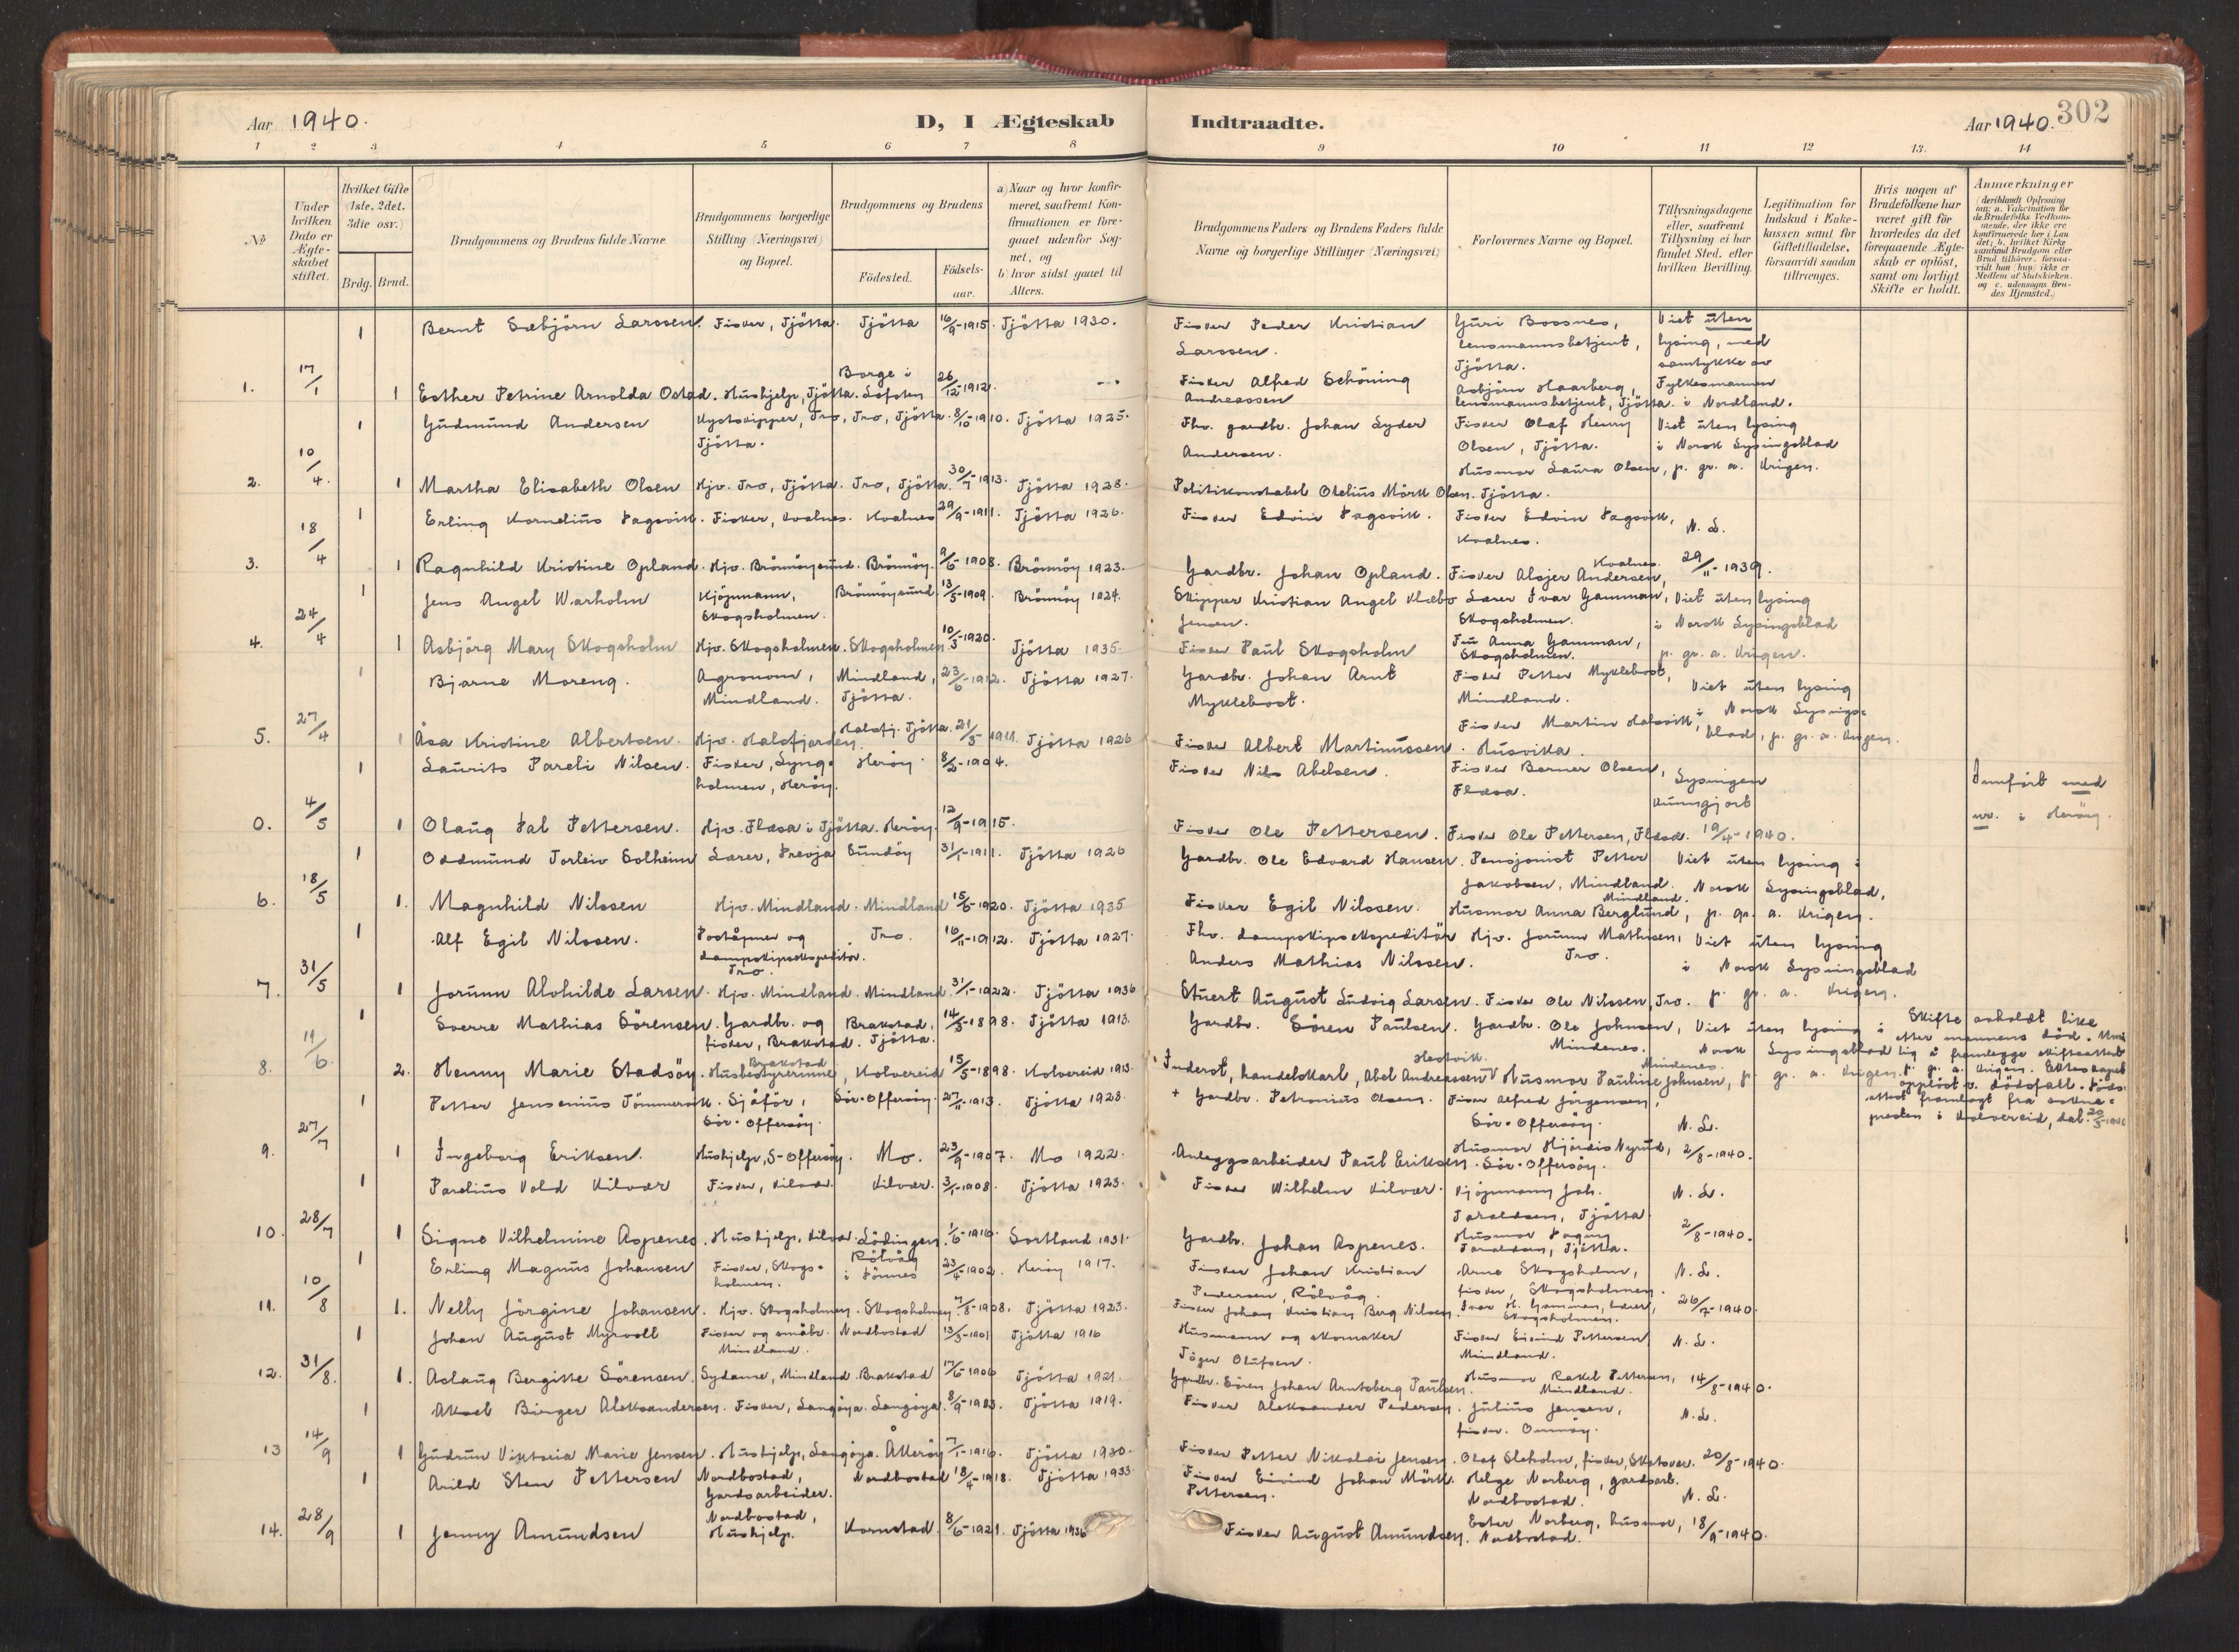 Aar 1940.
D, I Ægteskab
Indtraadte.
Aar 1940. 302
1 2 3 4 5 6 7 8 9 10 11 12 13. 14
No
Under hvilken Dato er Ægteskabet stiftet.
Hvilket Gifte (1ste, 2det, 3die osv.)
Brdg. Brud.
Brudgommens og Brudens fulde Navne
Brudgommens borgerlige Stilling (Næringsvei) og Bopæl.
Brudgommens og Brudens
Fødested.
Fødselsaar.
a) Naar og hvor konfirmeret, saafremt Konfirmationen er foregaaet udenfor Sognet, og
b) hvor sidst gaaet til Alters.
Brudgommens Faders og Brudens Faders fulde Navne og borgerlige Stillinger (Næringsvei)
Forlovernes Navne og Bopæl.
Tillysningsdagene eller, saafremt Tillysning ei har fundet Sted, efter hvilken Bevilling.
Legitimation for Indskud i Enkekassen samt for Giftetilladelse, forsaavidt saadan tiltrænges.
Hvis nogen af Brudefolkene har været gift før hvorledes da det foregaaende Ægteskab er opløst, samt om lovligt Skifte er holdt.
Anmærkninger (deriblandt Oplysning om: a. Vakcination for de Brudefolks Vedkommende, der ikke ere konfirmerede her i Landet; b. hvilket Kirkesamfund Brudgom eller Brud tilhører, forsaavidt han (hun) ikke er Medlem af Statskirken, og c. udensogns Brudes Hjemsted.)
1 Bernt Sæbjörn Larssen. Fisker, Tjötta. Tjötta 16/9-1915. Tjötta 1930. Fisker Peder Kristian Larssen. Guri Bossnes, lensmannsbetjent, Tjötta. Viet uten lysing, med samtykke av Fylkesmannen i Nordland.
1. 17/1 1 Esther Petrine Arnolda Ostad. Hushjelp, Tjötta. Borge i Lofoten 26/12-1912. Fisker Alfred Schöning Andreassen Asbjörn Haarberg, lensmannsbetjent, Tjötta.
1 Gudmund Andersen Kystskipper, Tro, Tjötta. Tro, Tjötta. 8/10-1910. Tjötta 1925. Fhv. gardbr. Johan Lyder Andersen. Fisker Olaf Henry Olsen, Tjötta. Viet uten lysing i Norsk Lysingsblad p. gr. a. krigen.
2. 10/4. 1 Martha Elisabeth Olsen Hjv. Tro, Tjötta. Tro, Tjötta. 30/7-1913. Tjötta 1928. Politikonstabel Otelius Mörk Olsen. Tjötta. Husmor Laura Olsen,
1 Erling Kornelius Hagsvik. Fisker, Kvalnes. Kvalnes 29/9-1911. Tjötta 1926. Fisker Edvin Hagsvik. Fisker Edvin Hagsvik, Kvalnes. N. L.
3. 18/4 1 Ragnhild Kristine Opland. Hjv. Brönnöysund. Brönnöy. 9/6-1908. Brönnöy 1923. Gardbr. Johan Opland. Fisker Alsjer Andersen, Kvalnes. 29/11-1939.
1 Jens Angel Warholm Kjöpmann, Skogsholmen. Brönnöysund. 13/5-1909. Brönnöy 1924. Skipper Kristian Angel Klæbo Jensen. Lærer Ivar Gamman, Skogsholmen. Viet uten lysing i Norsk Lysingsblad p. gr. a. krigen.
4. 24/4 1 Asbjörg Mary Skogsholm Hjv. Skogsholmen. Skogsholmen. 10/3-1920. Tjötta 1935. Fisker Paul Skogsholm Fru Anna Gamman, Skogsholmen.
1 Bjarne Moreng. Agronom, Mindland. Mindland, Tjötta. 23/6-1912. Tjötta 1927. Gardbr. Johan Arnt Myklebost. Fisker Petter Myklebost, Mindland. Viet uten lysing i Norsk Lysingsblad, p. gr. a. krigen.
5. 27/4 1 Åsa Kristine Albertsen. Hjv. Halsfjorden. Halsfj. Tjötta. 21/3 1911. Tjötta 1926 Fisker Albert Martinussen. Fisker Martin Halsvik, Husvika.
1 Laurits Pareli Nilsen. Fisker, Lyngholmen, Heröy. Heröy 8/2-1904. Fisker Nils Abelsen. Fisker Berner Olsen, Flæsa. Lysingen kunngjort 19/4-1940. Innfört med nr. i Heröy.
0. 4/5 1 Olaug Hal Pettersen. Hjv. Flæsa i Tjötta. Heröy. 12/9-1915. Fisker Ole Pettersen. Fisker Ole Pettersen, Flæsa.
1 Oddmund Torleiv Solheim Lærer, Trevja Sundöy 31/1-1911. Tjötta 1926 Gardbr. Ole Edvard Hansen. Pensjonist Petter Jakobsen, Mindland. Viet uten lysing i Norsk Lysingsblad, p. gr. a. krigen.
6. 18/5 1. Magnhild Nilssen Hjv. Mindland. Mindland 15/6-1920. Tjötta 1935 Fisker Egil Nilssen. Husmor Anna Berglund, Mindland.
1 Alf Egil Nilssen. Poståpner og dampskipsekspeditör. Tro. Tro. 16/11-1912. Tjötta 1927. Fhv. dampskipsekspeditör Anders Mathias Nilssen. Hjv. Jorunn Mathisen, Tro. Viet uten lysing i Norsk Lysningsblad p. gr. a. krigen.
7. 31/5 1 Jorunn Alvhilde Larsen. Hjv. Mindland. Mindland. 31/1-1922. Tjötta 1936 Stuert August Ludvig Larsen. Fisker Ole Nilssen, Tro.
1 Sverre Mathias Sörensen. Gardbr. og fisker, Brakstad. Brakstad, Tjötta. 14/3-1898. Tjötta 1913. Gardbr. Sören Paulsen. Gardbr. Ole Johnsen, Mindenes. Viet uten lysing i Norsk Lysingsblad p. gr. a. krigen. Skifte avholdt like efter mannens död. Umulig å fremlegge skifteattest p. gr. a. krigen. Ekteskapet opplöst v. dödsfall. Dödsattest fremlagt fra sokneprest i Kolvereid, dat. 20/5-1940
8. 14/6. 2. Henny Marie Stadsöy. Husbestyrerinne, Brakstad Kolvereid 15/5-1898. Kolvereid 1913. Inderst, handelskarl, Abel Andreassen Hestvik. Husmor Pauline Johnsen, Mindenes.
1 Petter Jensenius Tömmervik. Sjåför, Sör-Offersöy. Sör-Offersöy. 27/11-1913. Tjötta 1928. + Gardbr. Petronius Olsen. Fisker Alfred Jörgensen, Sör-Offersöy. N. L.
9. 27/7 1 Ingeborg Eriksen. Hushjelp, S-Offersöy. Mo. 23/9-1907. Mo 1922. Anleggsarbeider Paul Eriksen. Husmor Hjördis Nyrud, Sör-Offersöy. 2/8-1940.
1 Parelius Vold Kilvær Fisker, Kilvær. Kilvær. 3/1-1908. Tjötta 1923. Fisker Wilhelm Kilvær. Kjöpmann Joh. Taraldsen, Tjötta. N. L.
10. 28/7 1 Signe Vilhelmine Aspenes. Hushjelp, Kilvær. Lödingen. 1/6-1916. Sortland 1931. Gardbr. Johan Aspenes. Husmor Dagny Taraldsen, Tjötta. 2/8-1940.
1 Erling Magnus Johansen Fisker, Skogsholmen. Rölvåg i Dönnes 23/4-1902. Heröy 1917. Fisker Johan Kristian Pedersen, Rölvåg. Arne Skogsholm, fisker, Skogsholmen. N. L.
11. 10/8 1. Nelly Jörgine Johansen. Hjv. Skogsholmen. Skogsholmen 7/8-1908. Tjötta 1923. Fisker Johan Kristian Berg Nilsen. Ivar H. Gamman, lærer, Skogsholmen. 26/7-1940.
1 Johan August Myrvoll Fisker og småbr. Mindland. Nordbostad 13/3-1901 Tjötta 1916 Husmann og skomaker Töger Olufsen. Fisker Eivind Pettersen Mindland. N. L.
12. 31/8. 1. Aslaug Bergitte Sörensen. Sydame, Mindland. Brakstad 17/6-1906 Tjötta 1921. Gardbr. Sören Johan Arntsberg Paulsen. Husmor Rakel Pettersen, Mindland. 14/8-1940.
1 Aksel Birger Aleksandersen. Fisker, Langöya. Langöya. 8/9-1903. Tjötta 1919. Fisker Aleksander Pedersen. Julius Jensen, fisker. N. L.
13 14/9 1 Gudrun Viktoria Marie Jensen. Hushjelp, Langöya. Åkeröy 7/1-1916. Tjötta 1930. Fisker Petter Nikolai Jensen. Olaf Sleholm, fisker, Skotsver. 20/8-1940.
1 Arild Sten Pettersen Nordbostad, Gardsarbeider. Nordbostad 18/4-1918. Tjötta 1933. Fisker Eivind Johan Mörk Pettersen. Helge Norberg, gardsarb. Nordbostad. N. L.
14. 28/9 1 Jenny Amundsen Nordbostad, Hushjelp. Kornstad. 8/6-1921. Tjötta 1936 Fisker August Amundsen. Ester Norberg, husmor, Nordbostad. 18/9-1940.